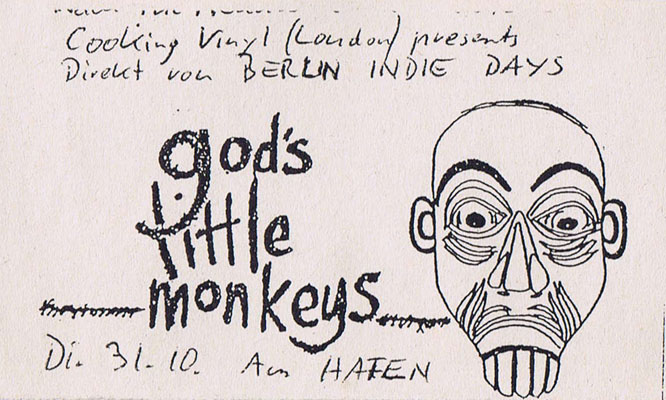 Cooking Vinyl (London) presents
Direkt von BERLIN INDIE DAYS
god's
little
monkeys
Di. 31.10. Am HAFEN